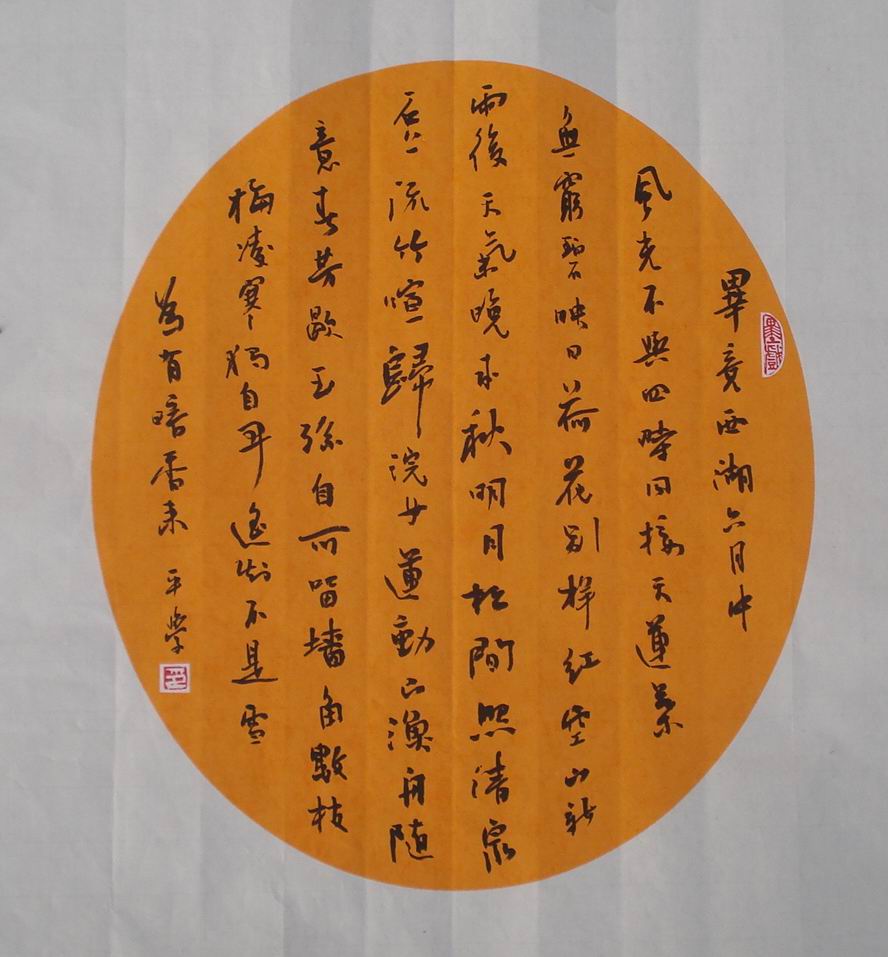 畢竟西湖六月中
風光不與四時同接天蓮葉
無窮碧映日荷花别樣紅空山新
雨後天氣晚来秋明月松間照清泉
石上流竹喧歸浣女蓮動下漁舟随
意春芳歇王孫自可留墻角數枝
梅凌寒獨自開遥知不是雪
為有暗香来 平學
墨戲